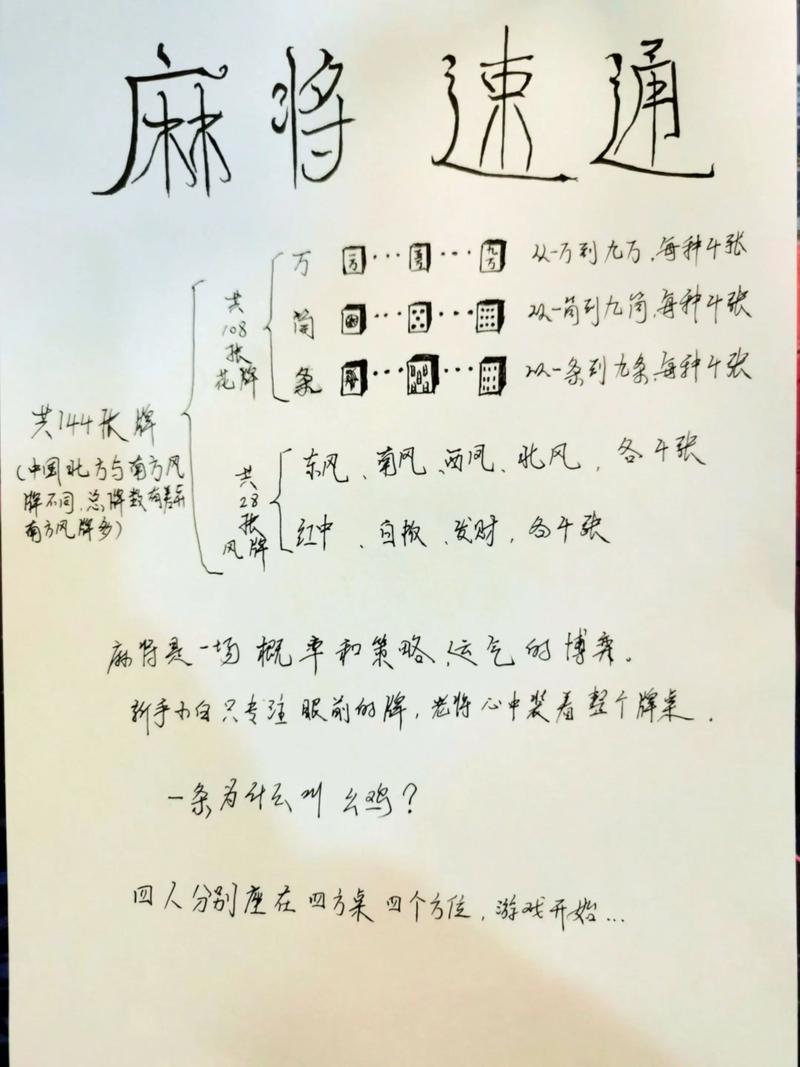 麻将速通
万 从一万到九万,每种4张
共108张花牌
筒 从一筒到九筒,每种4张
条 从一条到九条,每种4张
共144张牌
(中国北方与南方风
牌不同,总牌数有差异
南方风牌多)
共28张风牌
东风、南风、西风、北风,各4张
红中、白板、发财,各4张
麻将是一场概率和策略、运气的博弈。
新手小白只专注眼前的牌,老将心中装着整个牌桌.
一条为什么叫幺鸡?
四人分别座在四方桌四个方位,游戏开始...